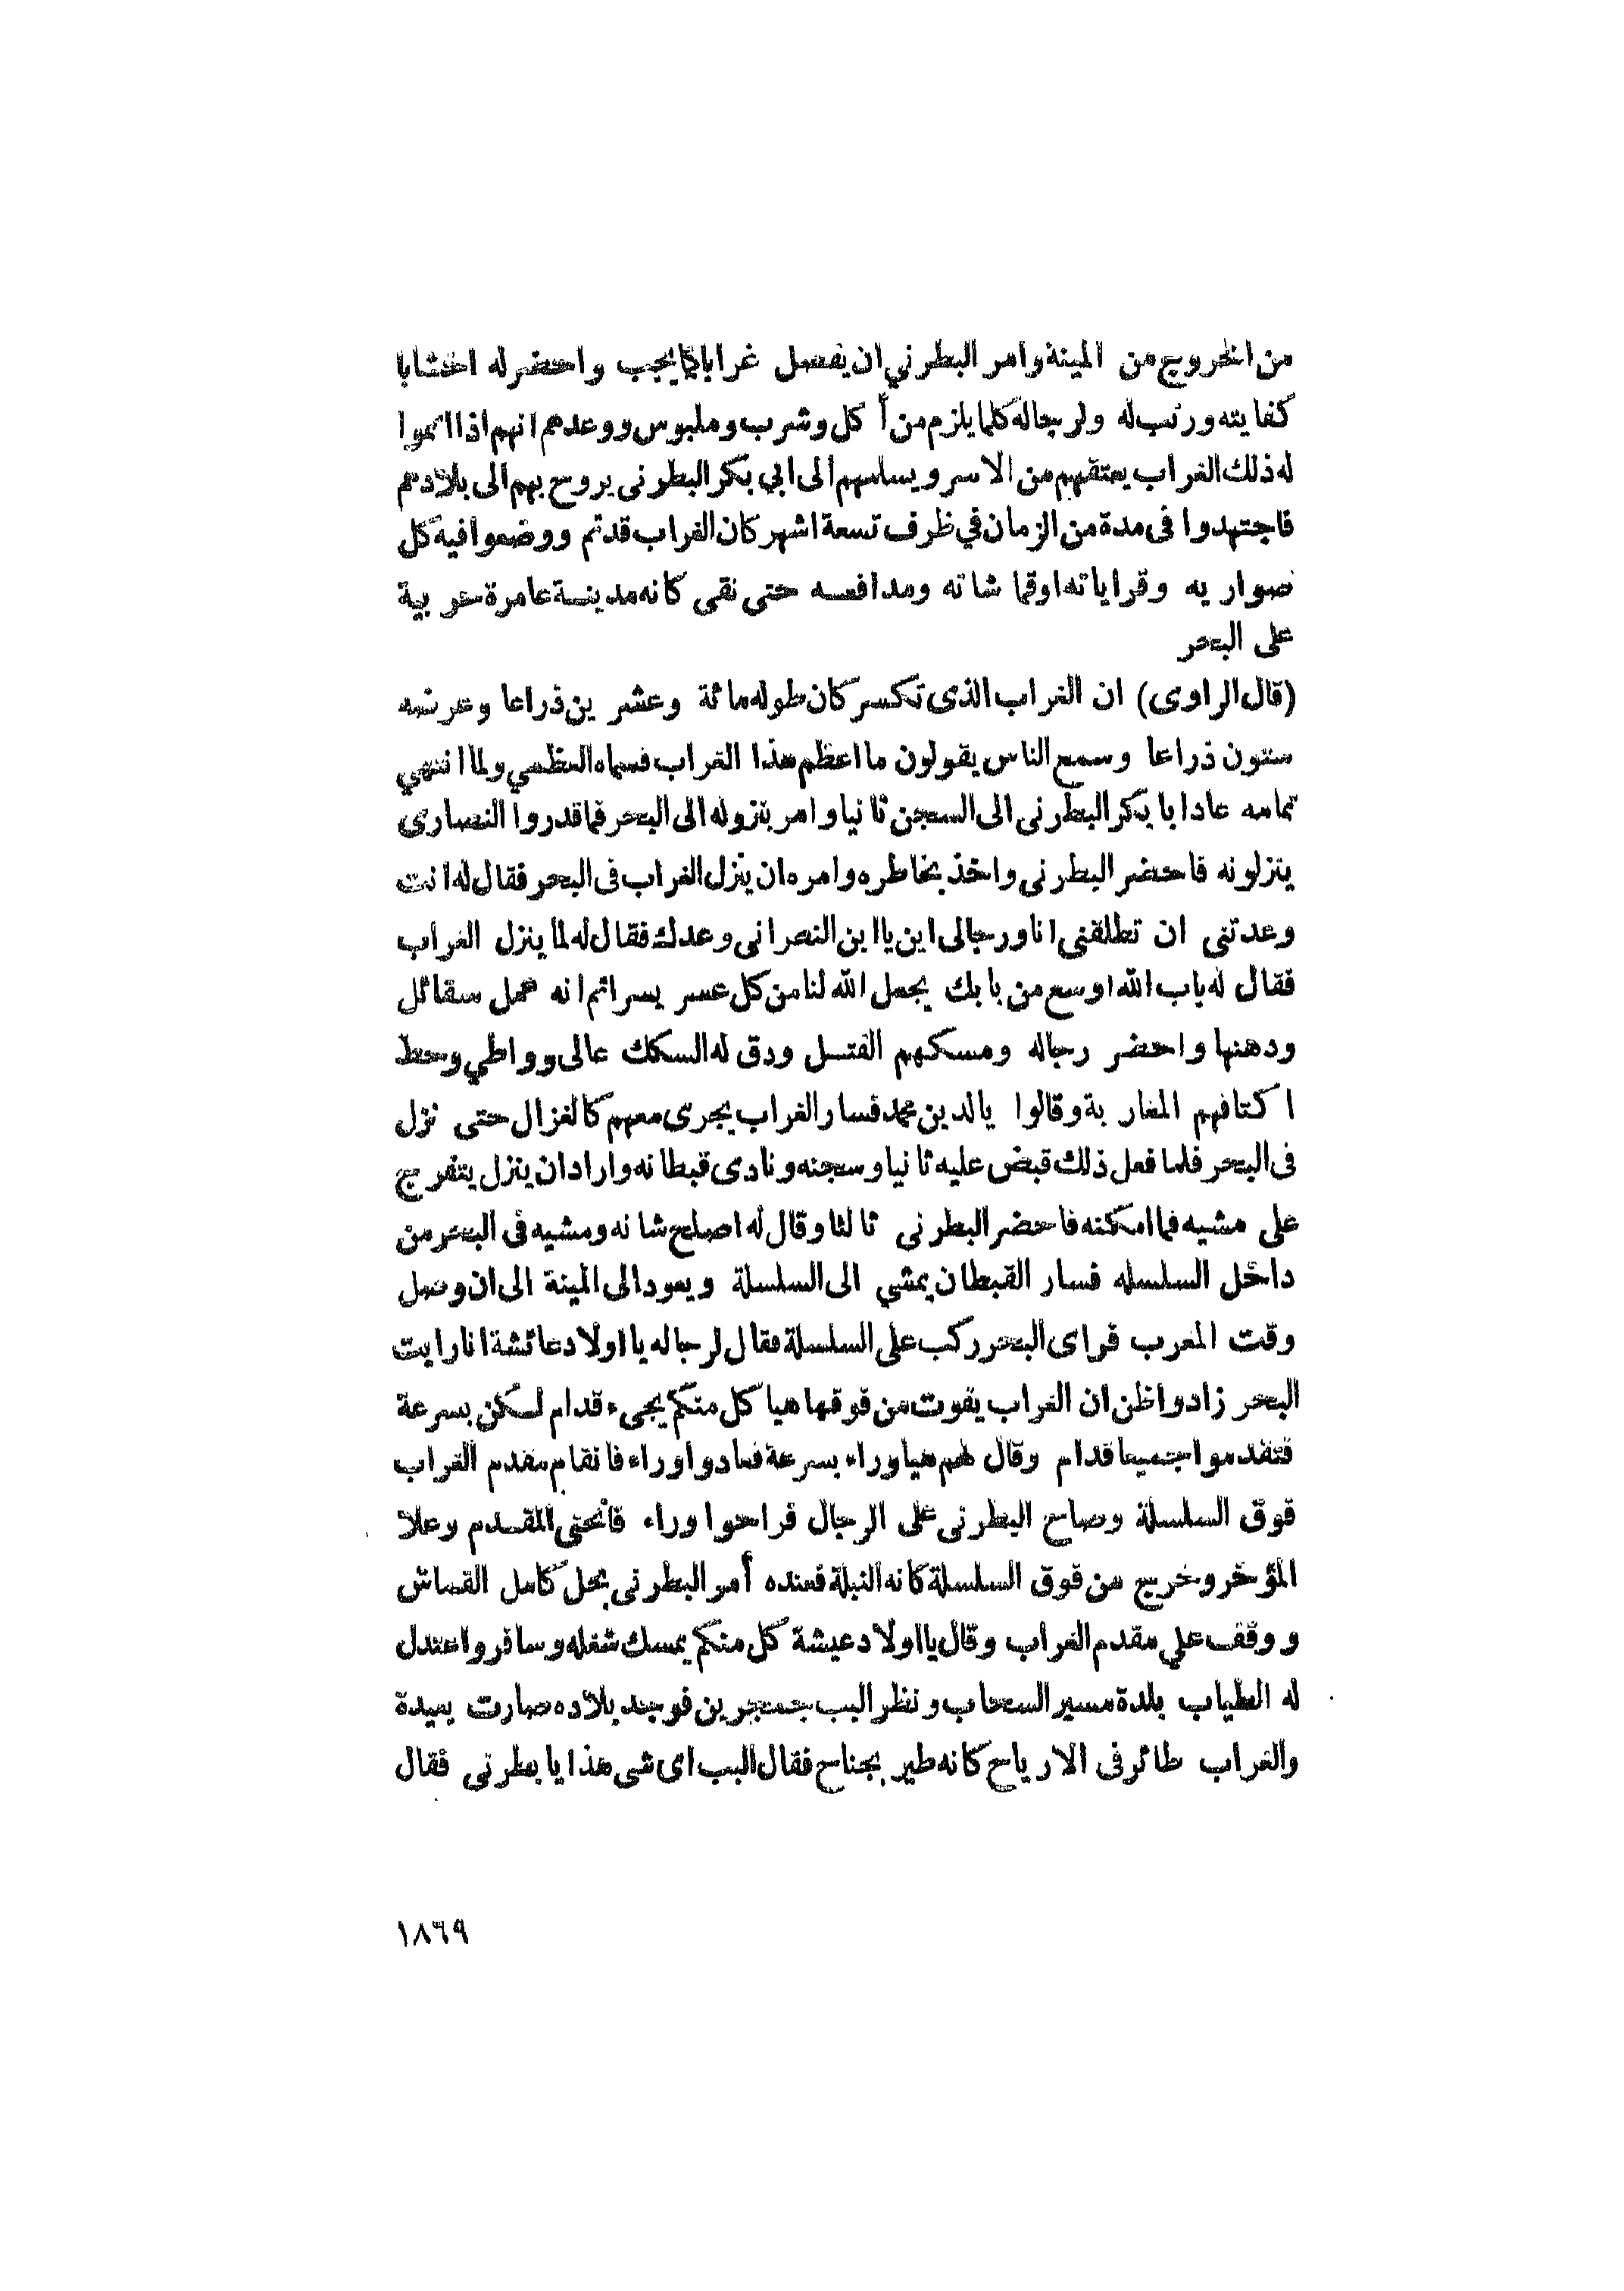 من الخروج من المينة وامر البطرني ان يفصل غرابا كما يجب واحضر له اخشابا
كفايته ورتب له ولرجاله كلما يلزم من أكل وشرب وملبوس ووعدهم انهم اذا اتموا
له ذلك الغراب يعتقهم من الاسر ويسلمهم الى ابي بكر البطرنى يروح بهم الى بلادهم
فاجتهدوا فى مدة من الزمان في ظرف تسعة اشهر كان الغراب قد تم ووضعوا فيه كل
صواريه وقراياته اوقماشاته ومدافعه حتى نقى كانه مدينة عامرة حربية
على البحر
(قال الراوى) ان الغراب الذى تكسر كان طوله مائة وعشرين ذراعا وعرضه
ستون ذراعا وسمع الناس يقولون ما اعظم هذا الغراب فسماه العظمي ولما انتهي
تمامه عاد ابا بكر البطرنى الى السجن ثانيا وامر بتزوله الى البحر فما قدروا النصارى
يتزلونه فاحضر البطرنى واخذ بخاطره وامره ان ينزل الغراب فى البحر فقال له انت
وعدتنى ان تطلقنى انا ورجالى اين يا ابن النصرانى وعدك فقال له لما ينزل الغراب
فقال له باب الله اوسع من بابك يجعل الله لنا من كل عسر يسرا ثم انه عمل سقائل
ودهنها واحضر رجاله ومسكهم الفتل ودق له السكك عالى وواطي وحط
اكتافهم المغاربة وقالوا يالدين محمد فسار الغراب يجرى معهم كالغزال حتى نزل
فى البحر فلما فعل ذلك قبض عليه ثانيا وسجنه ونادى قبطانه واراد ان ينزل يتفرج
على مشيه فما امكنه فاحضر البطرنى ثالثا وقال له اصلح شانه ومشيه فى البحر من
داخل السلسله فسار القبطان يمشي الى السلسلة ويعود الى المينة الى ان وصل
وقت المعرب فراى البحر ركب على السلسلة فقال لرجاله يا اولاد عائشة انا رايت
البحر زاد واظن ان الغراب يفوت من فوقها هيا كل منكم يجىء قدام لكن بسرعة
فتقدموا جميعا قدام وقال لهم هيا وراء بسرعة فعادوا وراء فانقام مقدم الغراب
فوق السلسلة وصاح البطرنى على الرجال فراحوا وراء فانحنى المقدم وعلا
المؤخر وخرج من فوق السلسلة كانه النبلة فعنده أمر البطرنى بحل كامل القماش
ووقف علي مقدم الغراب وقال يا اولاد عيشة كل منكم يمسك شغله وسافر واعتدل
له الطياب بلدة مسير السحاب ونظر البب جمجرين فوجد بلاده صارت بعيدة
والغراب طائر فى الارياح كانه طير بجناح فقال البب اى شى هذا يا بطرنى فقال
١٨٦٩